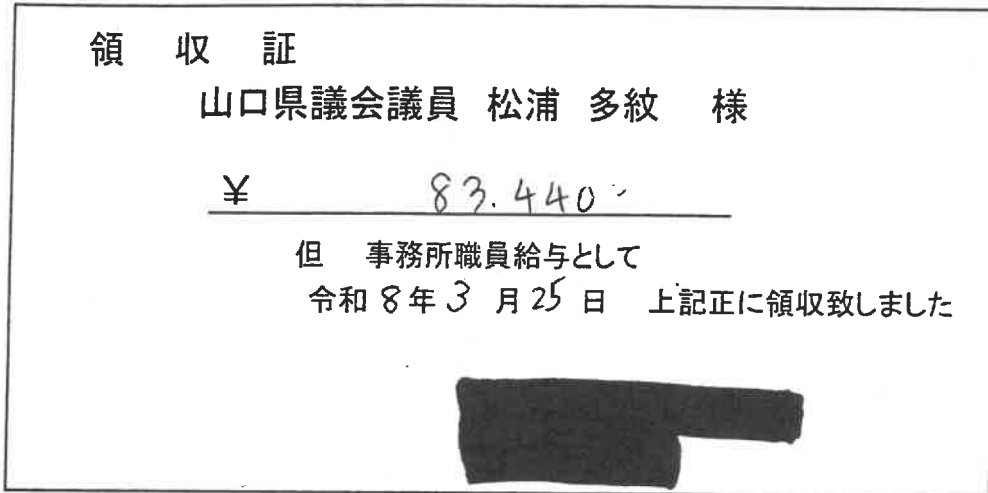 領 収 証
山口県議会議員 松浦 多紋 様
¥ 83.440
但 事務所職員給与として
令和 8年 3月 25日 上記正に領収致しました